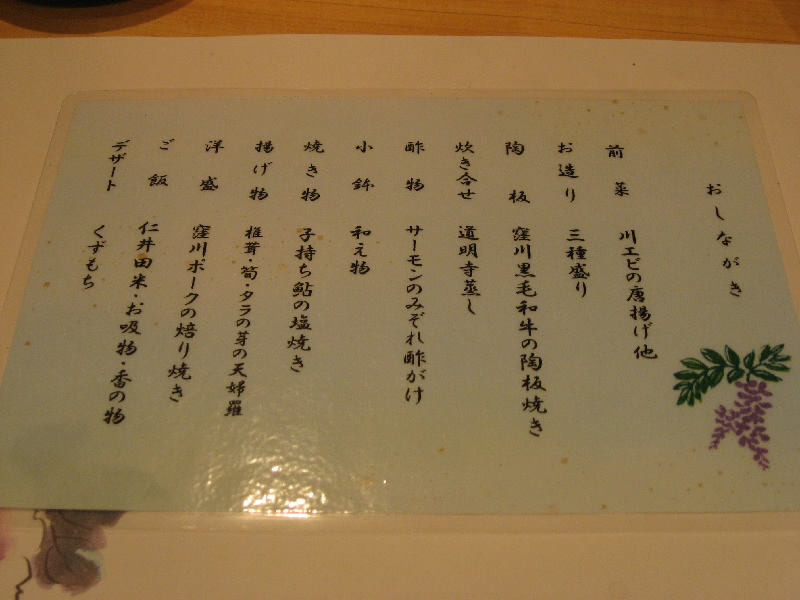 おしながき
前菜 川エビの唐揚げ他
お造り 三種盛り
陶板 窪川黒毛和牛の陶板焼き
炊き合せ 道明寺蒸し
酢物 サーモンのみぞれ酢がけ
小鉢 和え物
焼き物 子持ち鮎の塩焼き
揚げ物 椎茸・筍・タラの芽の天婦羅
洋盛 窪川ポークの焙り焼き
ご飯 仁井田米・お吸物・香の物
デザート くずもち